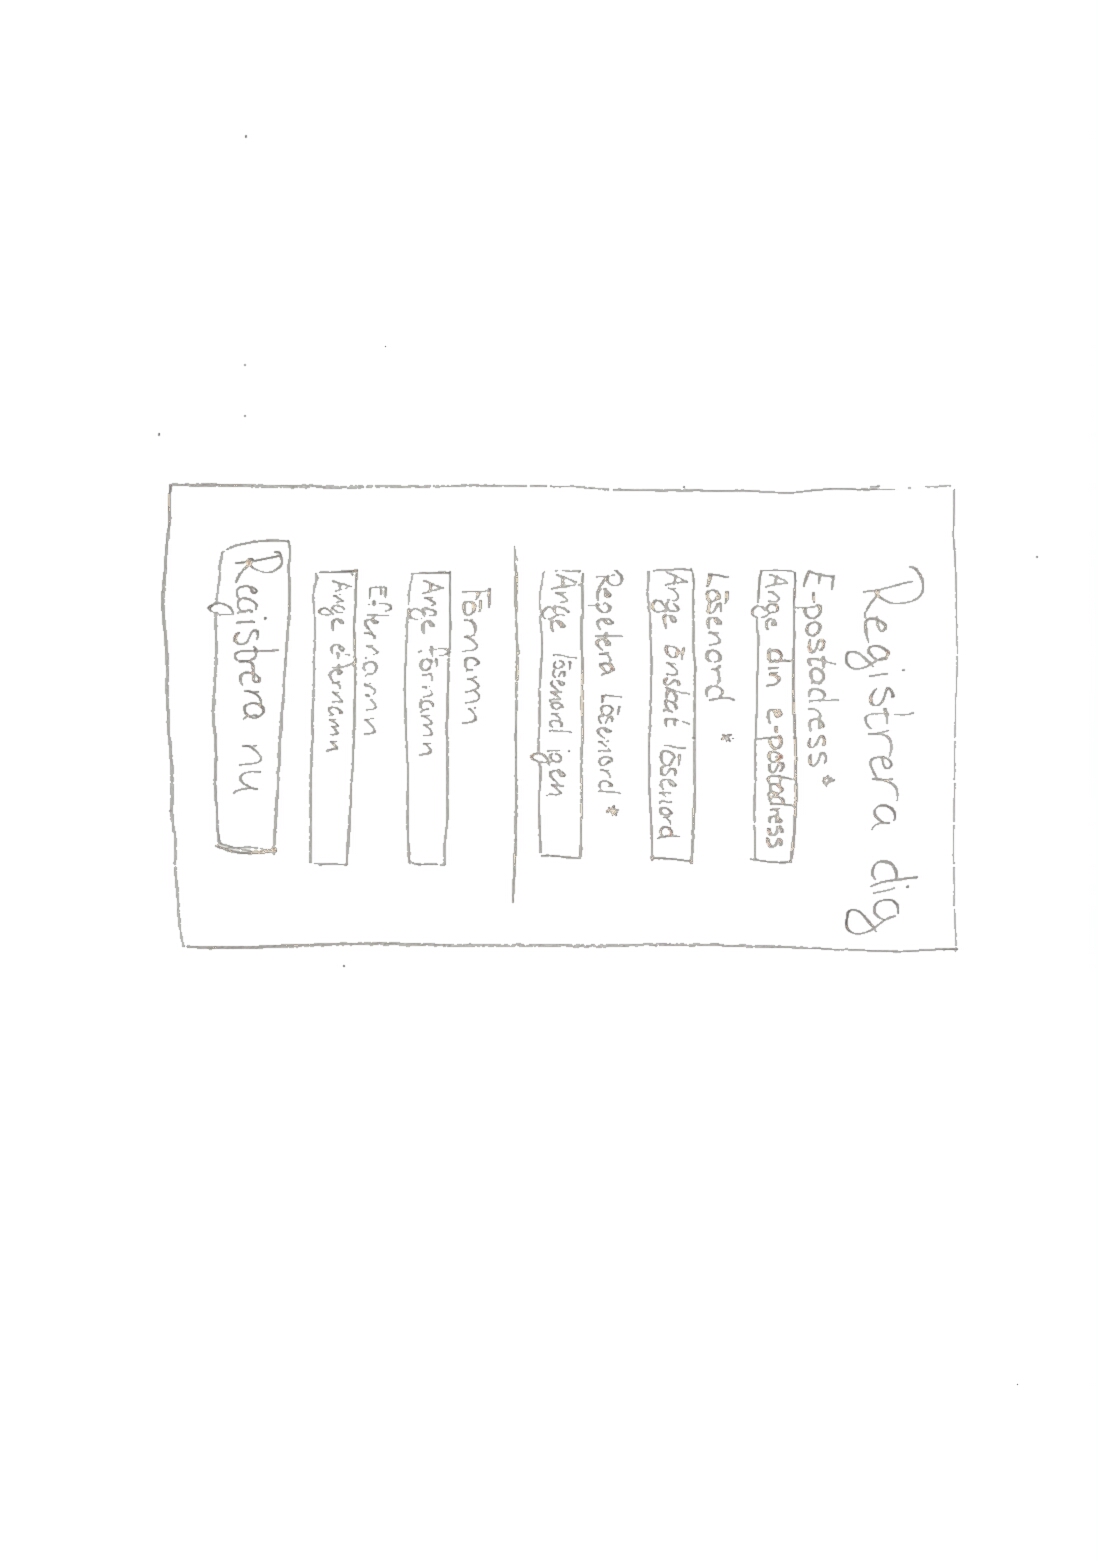 Registrera dig
E-postadress*
Ange din e-postadress
Lösenord *
Ange önskat lösenord
Repetera Lösenord*
Ange lösenord igen
Förnamn
Ange förnamn
Efternamn
Ange efternamn
Registrera nu